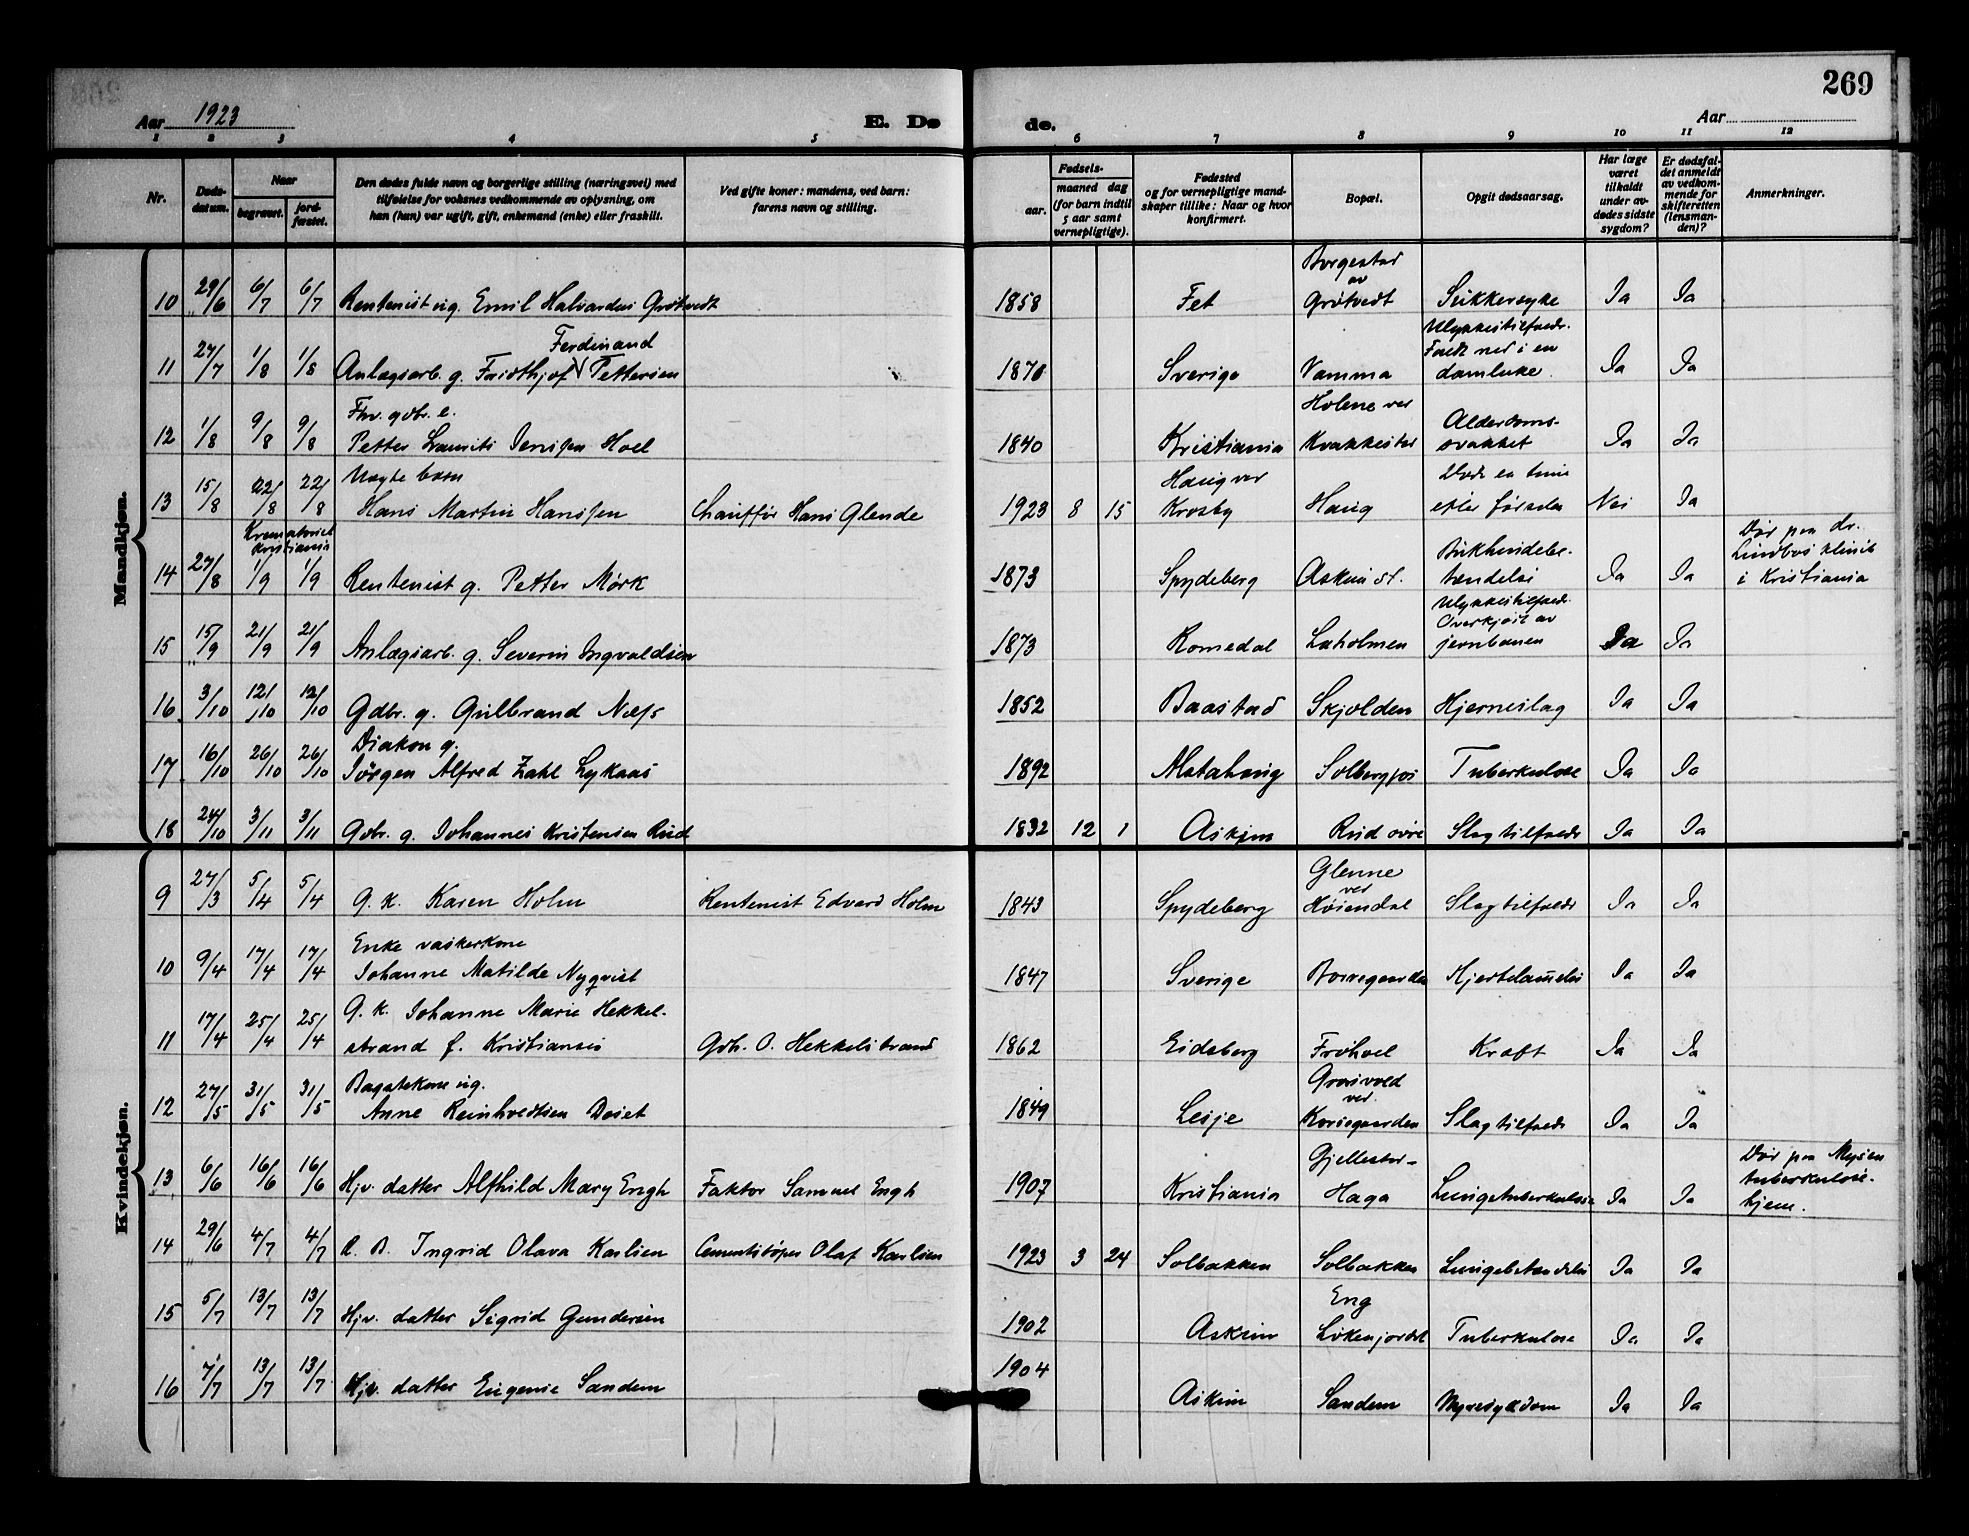 269
Aar 1923
E. Dø
de.
Aar
1 2 3 4 5 6 7 8 9 10 11 12
Nr.
Døds-
datum.
Naar
begravet.
jord-
fæstet.
Den dødes fulde navn og borgerlige stilling (næringsvei) med
tilføielse for voksnes vedkommende av oplysning, om
han (hun) var ugift, gift, enkemand (enke) eller fraskilt.
Ved gifte koner: mandens, ved barn:
farens navn og stilling.
Fødsels-
aar.
maaned dag
(for barn indtil
5 aar samt
vernepligtige).
Fødested
og for vernepligtige mand-
skaper tillike: Naar og hvor
konfirmert.
Bopæl.
Opgit dødsaarsag.
Har læge
været
tilkaldt
under av-
dødes sidste
sygdom?
Er dødsfal-
det anmeldt
av vedkom-
mende for
skifteretten
(lensman-
den)?
Anmerkninger.
Mandkjøn.
Borgestad
av
10 29/6 6/7 6/7 Rentenist ug. Emil Halvardsen Grøtvedt 1858 Fet Grøtvedt Sukkersyke Ja Ja
Ferdinand Ulykkestilfælde.
Faldt ned i en
11 27/7 1/8 1/8 Anlægsarb. g. Fridthjof Pettersen 1876 Sverige Vamma damluke. Ja Ja
Fhv. gdbr. e. Holene ved Alderdoms-
12 1/8 9/8 9/8 Petter Laurits Jenssen Hoel 1840 Kristiania Kvakkestad svakhet Ja Ja
Uægte barn Haug ved Døde en time
13 15/8 22/8 22/8 Hans Martin Hanssen Chauffør Hans Glende 1923 8 15 Krosby Haug efter førselen Nei Ja
Krematoriet
Kristiania
Bukhindebe- Død paa dr.
Lindbos klinik
14 27/8 1/9 1/9 Rentenist g. Petter Mørk 1873 Spydeberg Askim st. tændelse Ja Ja i Kristiania
Ulykkestilfælde.
Overkjørt av
15 15/9 21/9 21/9 Anlægsarb. g. Severin Ingvaldsen 1873 Romedal Laholmen jernbanen Ja Ja
16 3/10 12/10 12/10 Gdbr. g. Gulbrand Næss 1852 Baastad Skjolden Hjerneslag Ja Ja
Diakon g.
17 16/10 26/10 26/10 Jørgen Alfred Zahl Lykaas 1892 Solbergfos Tuberkulose Ja Ja
18 24/10 3/11 3/11 Gdbr. g. Johannes Kristensen Rud 1832 12 1 Askim Rud øvre Slagtilfælde Ja Ja
Kvindekjøn.
Glenne
ved
9 27/3 5/4 5/4 G. k. Karen Holm Rentenist Edvard Holm 1843 Spydeberg Høiendal Slagtilfælde Ja Ja
Enke vaskerkone
10 9/4 17/4 17/4 Johanne Matilde Nyqvist 1847 Sverige Korsegaarden Hjertelammelse Ja Ja
G. k. Johanne Marie Hekkel-
11 17/4 25/4 25/4 strand f. Kristiansen Gdb. O. Hekkelstrand 1862 Eidsberg Frøhoel Kræft Ja Ja
Bagstekone ug. Grønvold
ved
12 27/5 31/5 31/5 Anne Reinhvedtsen Doset 1849 Lesje Korsegaarden Slagtilfælde Ja Ja
Gjellestad- Død paa Mysen
tuberkulose-
13 6/6 16/6 16/6 Hjv. datter Alfhild Mary Engh Faktor Samuel Engh 1907 Kristiania Haga Lungetuberkulose Ja Ja hjem.
14 29/6 4/7 4/7 Ingrid Olava Karlsen Cementstøper Olaf Karlsen 1923 3 24 Solbakken Solbakken Lungebetændelse Ja Ja
Eng
15 5/7 13/7 13/7 Hjv. datter Sigrid Gundersen 1902 Askim Løkenjordet Tuberkulose Ja Ja
16 7/7 13/7 13/7 Hjv. datter Eugenie Sandem 1904 Askim Sandem Nyresykdom Ja Ja